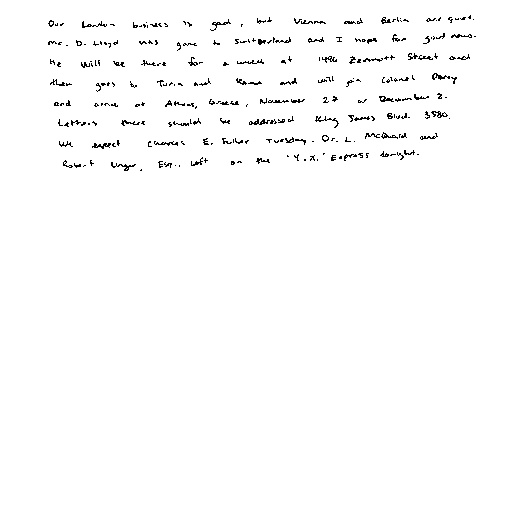 Our London business is good, but Vienna and Berlin are quiet.
Mr. D. Lloyd has gone to Switzerland and I hope for good news.
He will be there for a week at 1496 Zermott Street and
then goes to Turin and Rome and will join Colonel Parry
and arrive at Athens, Greece, November 27 or December 2.
Letters there should be addressed King James Blvd. 3580.
We expect Charles E. Fuller Tuesday. Dr. L. McQuaid and
Robert Unger, Esq., left on the "Y.X." Express tonight.